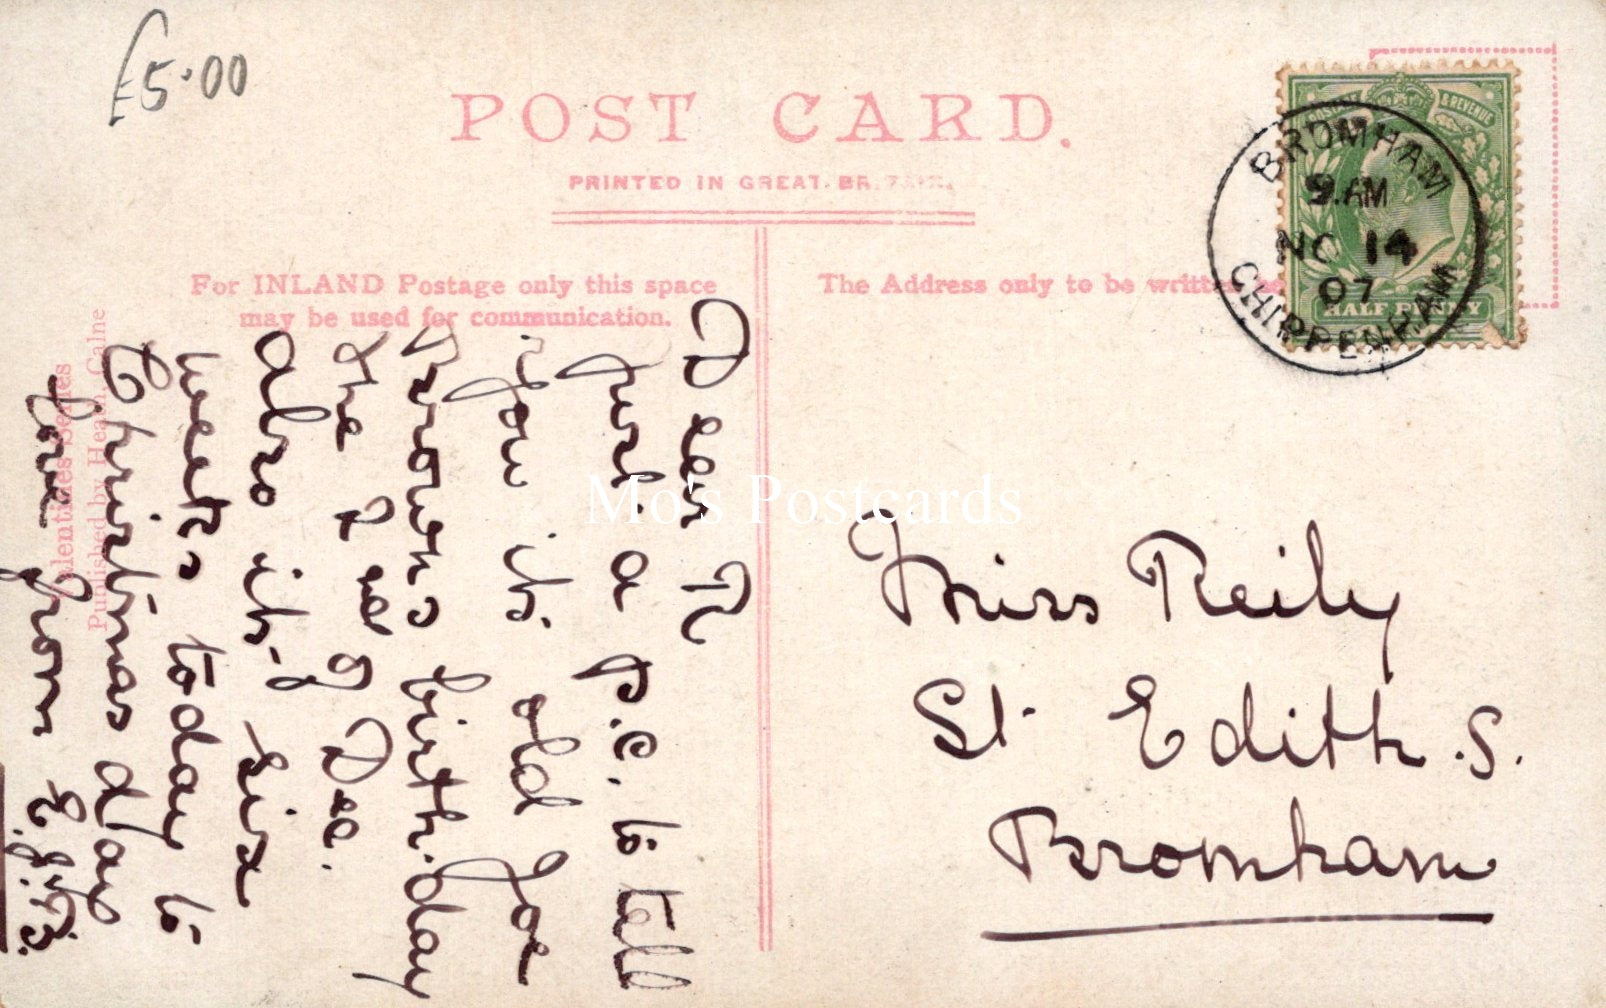 £5.00
POST CARD.
PRINTED IN GREAT BRITAIN.
For INLAND Postage only this space
may be used for communication.
The Address only to be written
& REVENUE
HALFPENNY
BROMHAM
9.AM
NO 14
07
CHIPPENHAM
Valentines Series
Published by Heath, Calne
Dear R
just a p.c. to tell
you its old Joe
Browns birth.day
the 2nd of Dec.
also its six
weeks today to
Christmas day
love from E.J.B.
Miss Reily
St. Edith.S.
Bromham
Mo's Postcards